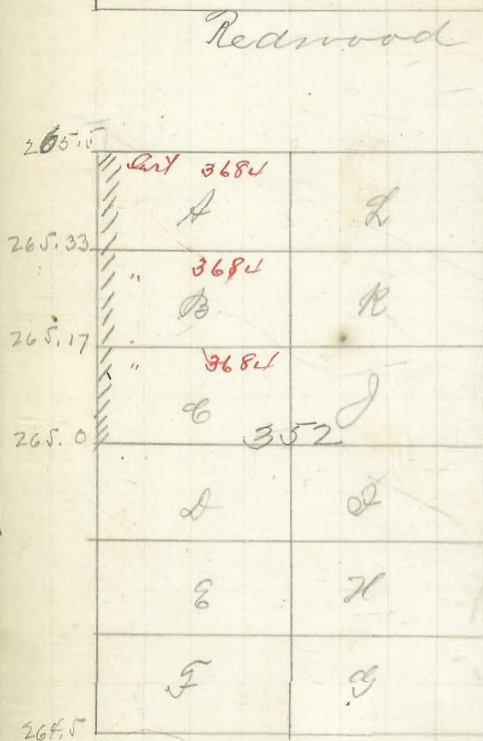 Redwood
265.5
Cert 3684
A L
265.33
" 3684
B K
265.17
" 3684
C J
265.0 352
D I
E H
F G
264.5